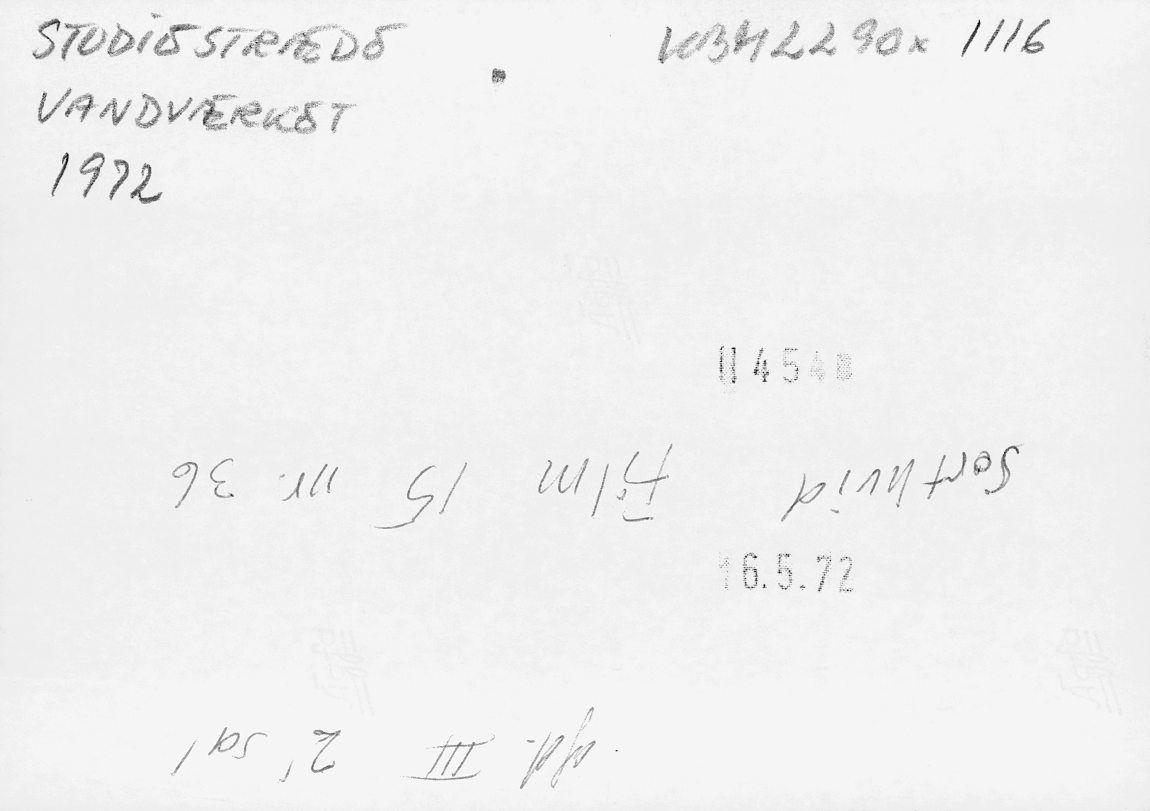 STUDIESTRÆDE
VANDVÆRKET
1972
KBM2290x 1116
Sorthvid Film 15 nr. 36
16.5.72
III 2' sal